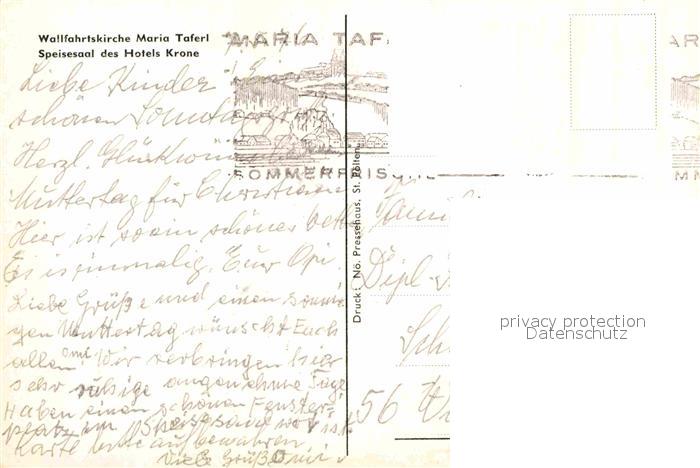 Wallfahrtskirche Maria Taferl
Speisesaal des Hotels Krone
MARIA TAF
AR
SOMMERFRISCHE
MM
Liebe Kinder
schönen
Herzl.
Muttertag für Christiane
Hier ist so ein schöner
Es ist einmalig. Euer Opi
Liebe Grüße und einen sonni-
gen Muttertag wünscht Euch
allen Omi. Wir verbringen hier
sehr ruhige angenehme Tage
Haben einen schönen Fenster-
platz im Speisesaal
Karte bitte aufbewahren
Viele Grüße Omi
Druck: Nö. Pressehaus, St. Pölten
Famil
Dipl-
Sch
56
privacy protection
Datenschutz